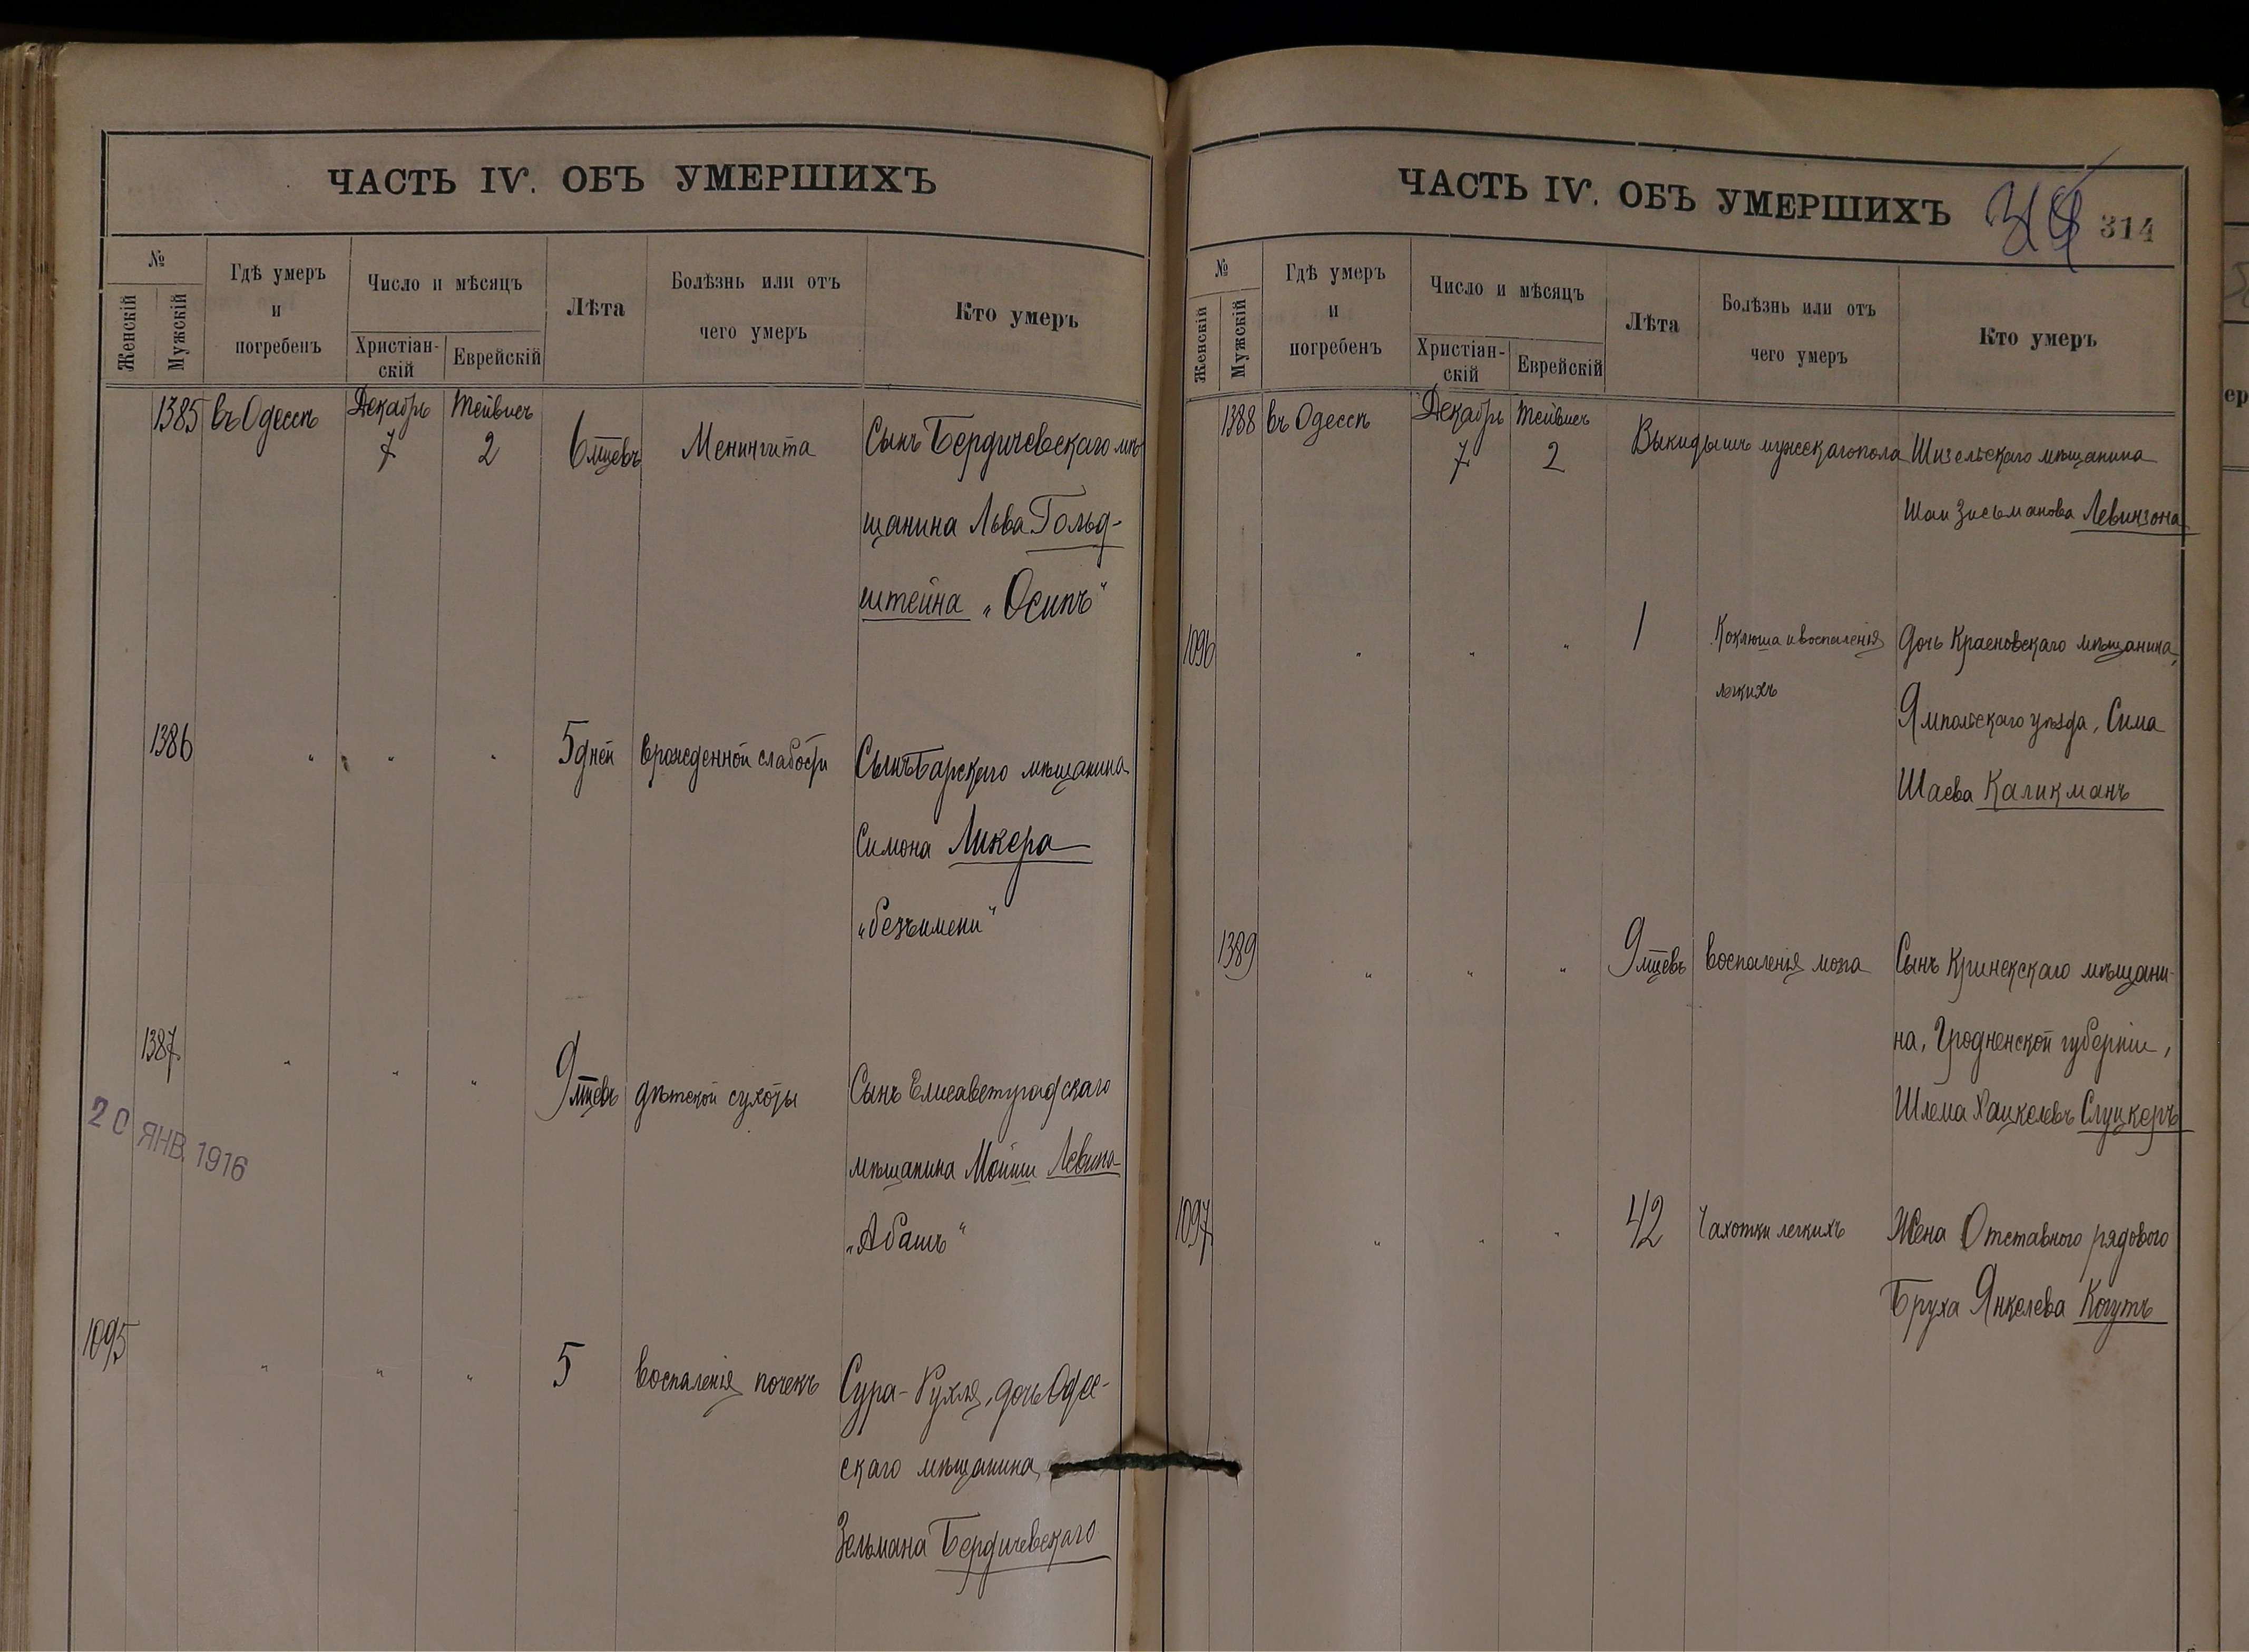 ЧАСТЬ IV. ОБЪ УМЕРШИХЪ
№
Женскій
Мужскій
Гдѣ умеръ
и
погребенъ
Число и мѣсяцъ
Христіан-
скій
Еврейскій
Лѣта
Болѣзнь или отъ
чего умеръ
Кто умеръ
1385 въ Одессѣ Декабрь 7 Тейвисъ 2 6 мцевъ Менингита Сынъ Бердичевскаго мѣ-
щанина Льва Гольд-
штейна „Осипъ“
1386 " " " 5 дней врожденной слабости Сынъ Барскаго мѣщанина
Симона Ликера
„безъимени“
1387 " " " 9 мцевъ дѣтской сухоты Сынъ Елисаветградскаго
мѣщанина Мойши Левина
„Абашъ“
20 ЯНВ. 1916
1095 " " " 5 воспаленія почекъ Сура-Рухля, дочь Одес-
скаго мѣщанина
Зельмана Бердичевскаго
ЧАСТЬ IV. ОБЪ УМЕРШИХЪ
314
№
Женскій
Мужскій
Гдѣ умеръ
и
погребенъ
Число и мѣсяцъ
Христіан-
скій
Еврейскій
Лѣта
Болѣзнь или отъ
чего умеръ
Кто умеръ
1388 въ Одессѣ Декабрь 7 Тейвисъ 2 Выкидышъ мужскаго пола мѣщанина
Шаи Зисьманова Левинзона
1096 " " " 1 Коклюша и воспаленія легкихъ Дочь Красновскаго мѣщанина,
Ямпольскаго уѣзда, Сима
Шаева Каликманъ
1389 " " " 9 мцевъ воспаленія мозга Сынъ Кринекскаго мѣщани-
на, Гродненской губерніи,
Шлема Хацкелевъ Слуцкеръ
1097 " " " 42 Чахотки легкихъ Жена Отставного рядового
Бруха Янкелева Когутъ